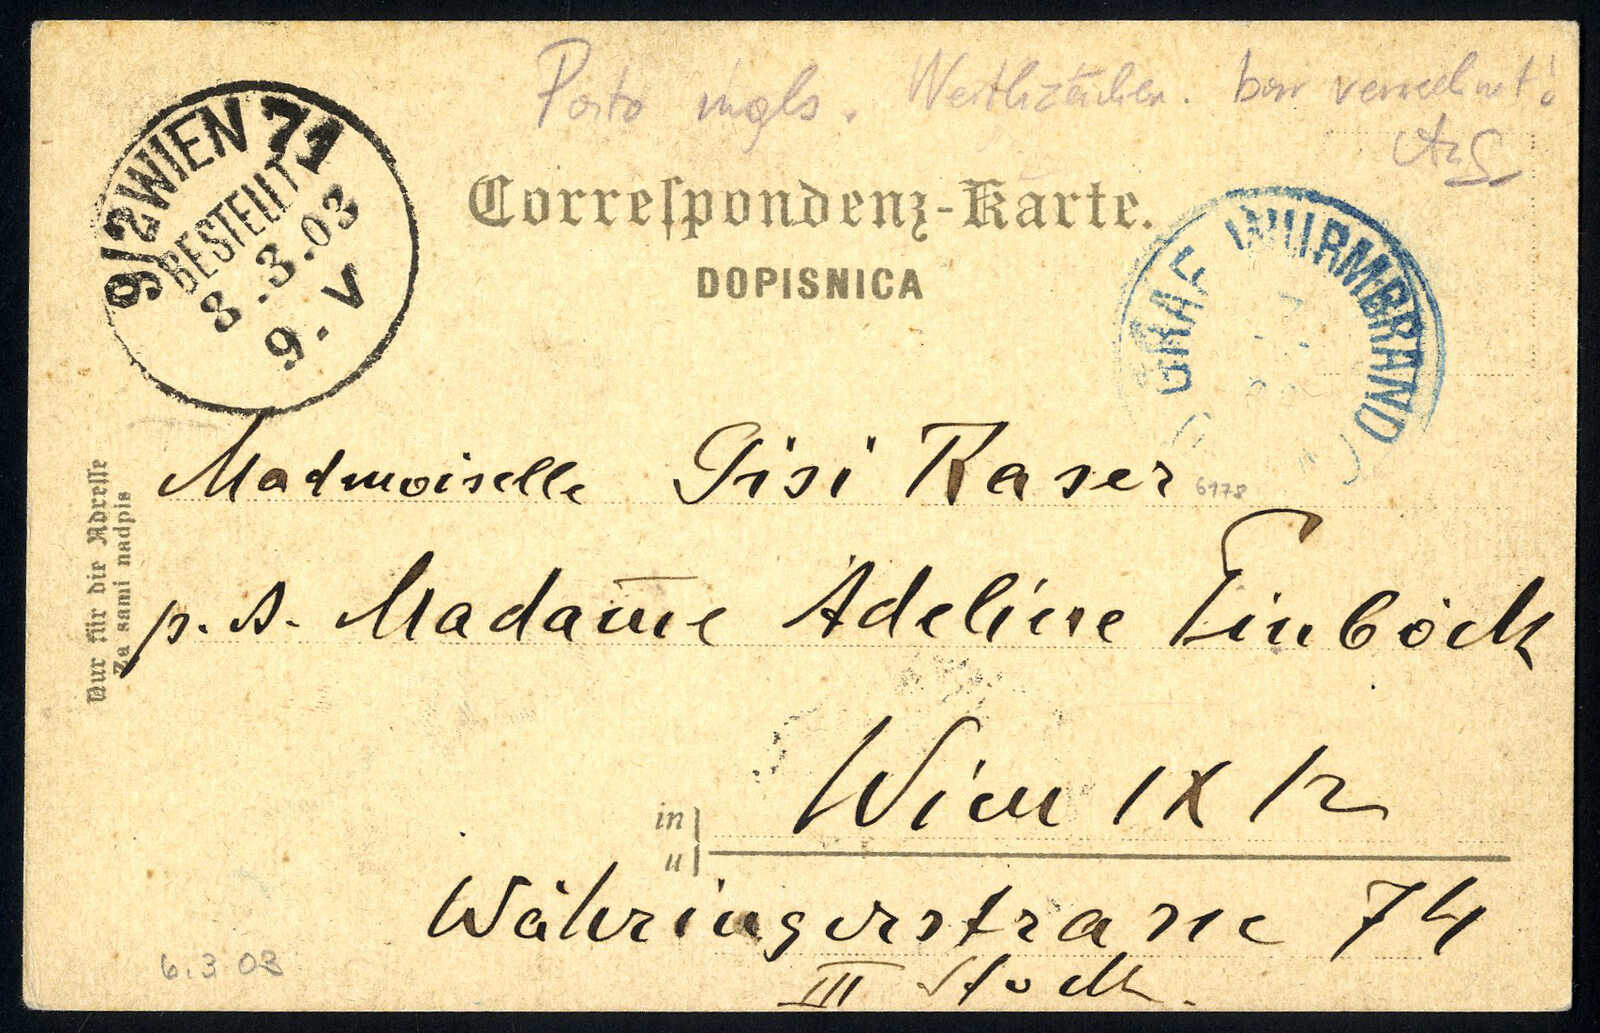 Porto mgls. Werthzeichen. bar verrechnet!
9/2 WIEN 71
BESTELLT
8.3.03
9-V
Correſpondenz-Karte.
DOPISNICA
GRAF WURMBRAND
Nur für die Adreſſe
Za sami nadpis
Mademoiselle Gisi Kaser
6178
p. A. Madame Adeline Einböck
in
u
Wien IX/2
Währingerstrasse 74
III Stock.
6.3 03